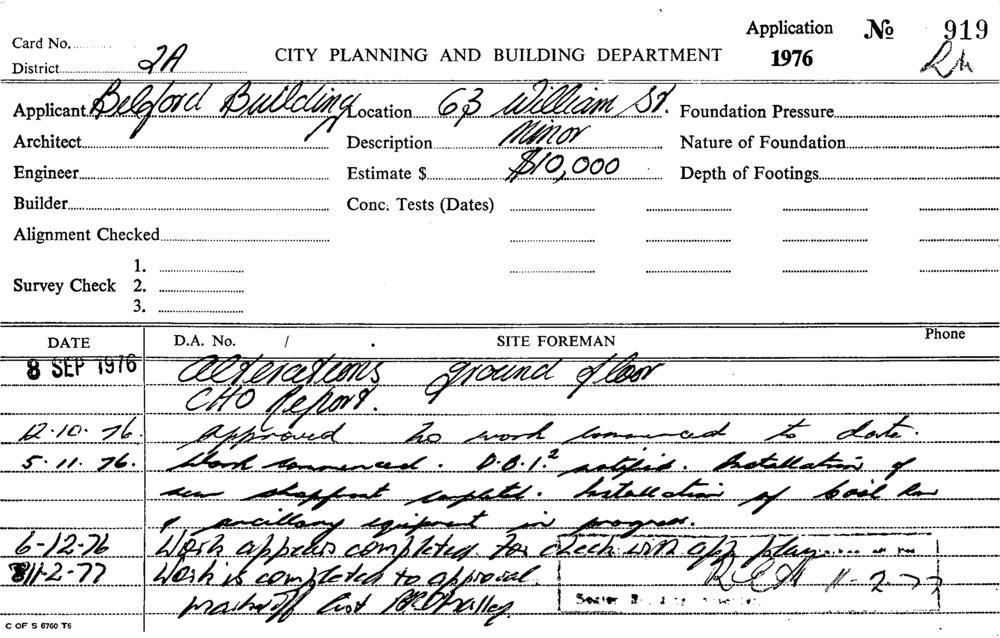 Application No 919
Card No.
District 2A
CITY PLANNING AND BUILDING DEPARTMENT
1976
Applicant Belford Building Location 63 William St. Foundation Pressure
Architect Description Minor Nature of Foundation
Engineer Estimate $ $10,000 Depth of Footings
Builder Conc. Tests (Dates)
Alignment Checked
1.
Survey Check 2.
3.
DATE D.A. No. / . SITE FOREMAN Phone
8 SEP 1976 Alterations ground floor
CHO Report.
12.10.76. approved no work commenced to date.
5.11.76. Work commenced. D.B.I.2 notified. Installation of
new shopfront completed. Installation of
& ancillary equipment in progress.
6-12-76 Work appears completed for check with app plan
11-2-77 Work is completed to approval 11-2-77
mark off list
C OF S 6760 T6